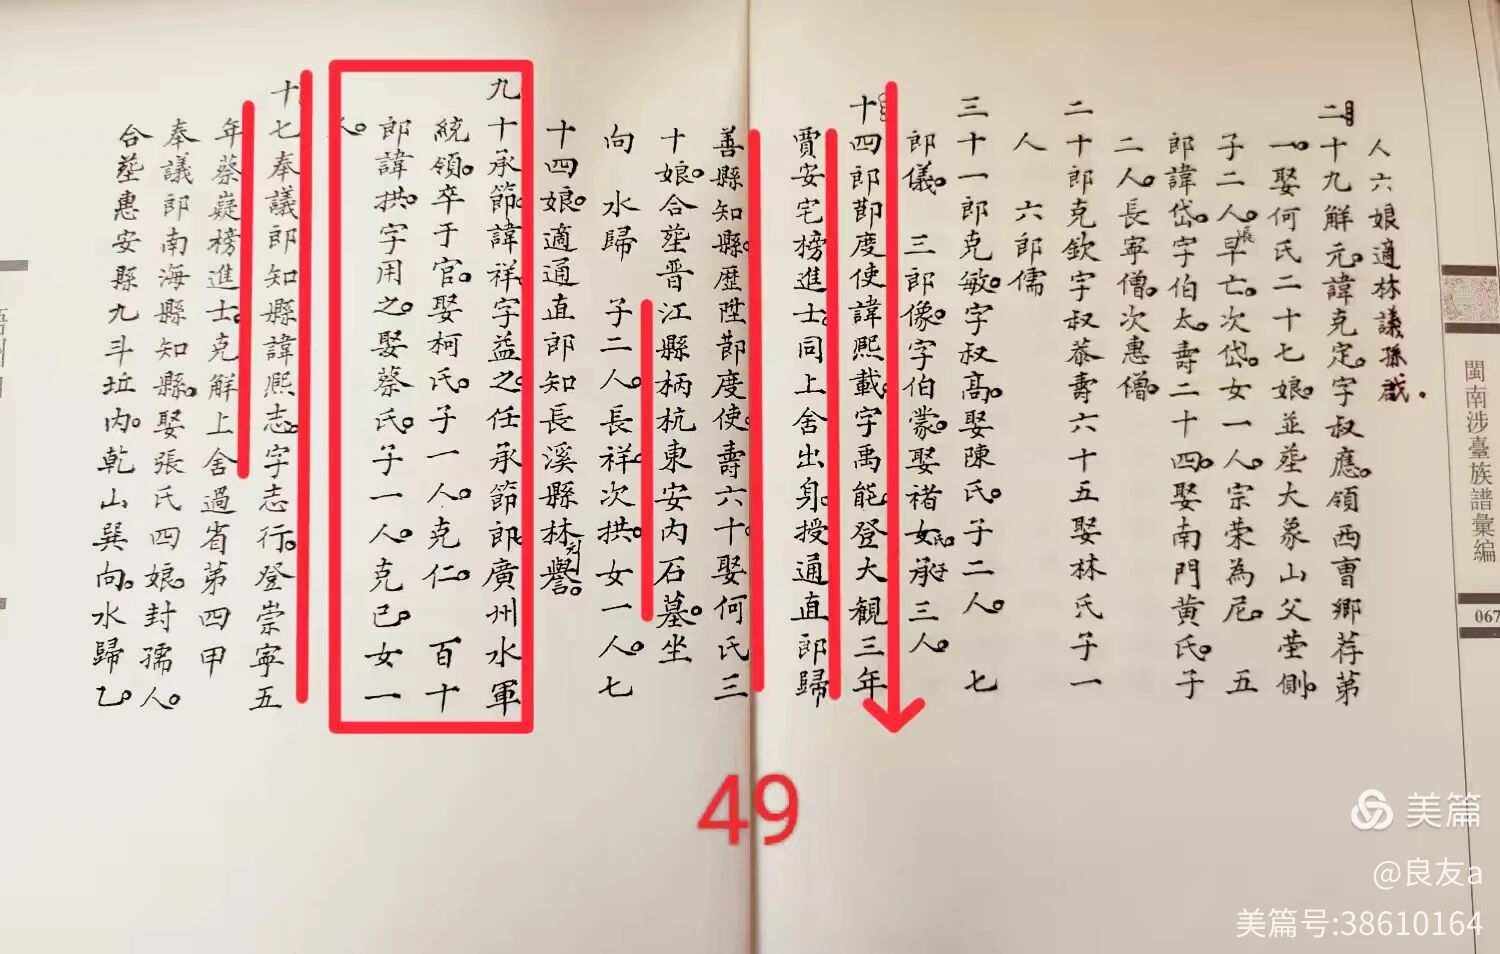 人六娘適林議孫
二十九解元諱克定字叔應領西曹鄉荐第
一娶何氏二十七娘並塟大象山父塋側
子二人長早亡次岱女一人宗榮為尼 五
郎諱岱字伯太壽二十四娶南門黃氏子
二人長寧僧次惠僧
二十郎克欽字叔恭壽六十五娶林氏子一
人 六郎儒
三十一郎克敏字叔高娶陳氏子二人 七
郎儀 三郎像字伯蒙娶褚氏女承子三人
十四郎節度使諱熙載字禹能登大觀三年
賈安宅榜進士同上舍出身授通直郎歸
善縣知縣歷陞節度使壽六十娶何氏三
十娘合塟晋江縣柄杭東安內石墓坐
向 水歸 子二人長祥次拱女一人七
十四娘適通直郎知長溪縣林元譽
九十承節諱祥字益之任承節郎廣州水軍
統領卒于官娶柯氏子一人克仁 百十
郎諱拱字用之娶蔡氏子一人克已女一
人
十七奉議郎知縣諱熙志字志行登崇寧五
年蔡嶷榜進士克解上舍過省第四甲
奉議郎南海縣知縣娶張氏四娘封孺人
合塟惠安縣九斗坵內乾山巽向水歸乙
閩南涉臺族譜彙編
067
49
美篇
@良友a
美篇号:38610164